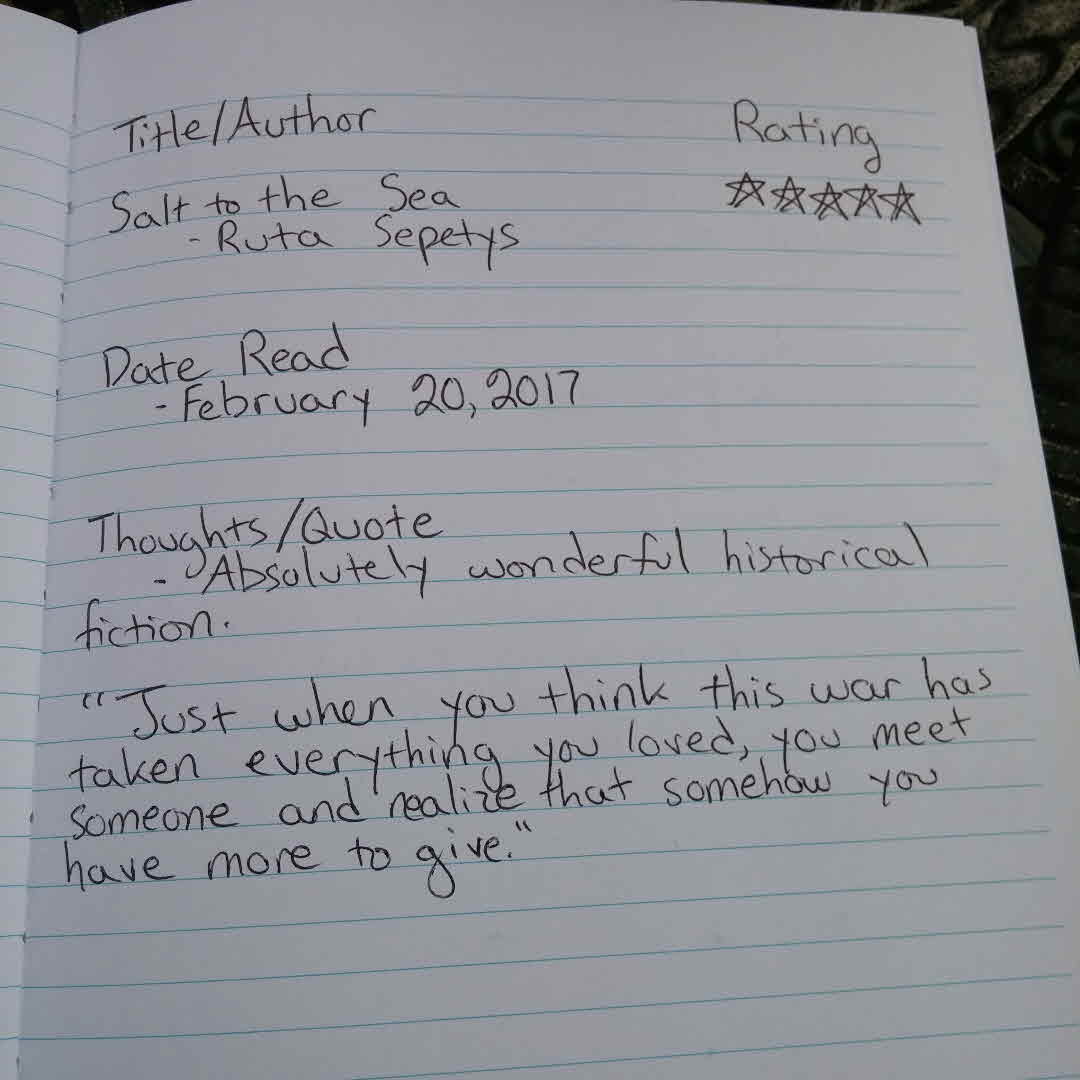 Title/Author Rating
Salt to the Sea ☆☆☆☆☆
- Ruta Sepetys
Date Read
- February 20, 2017
Thoughts/Quote
- Absolutely wonderful historical
fiction.
"Just when you think this war has
taken everything you loved, you meet
someone and realize that somehow you
have more to give."